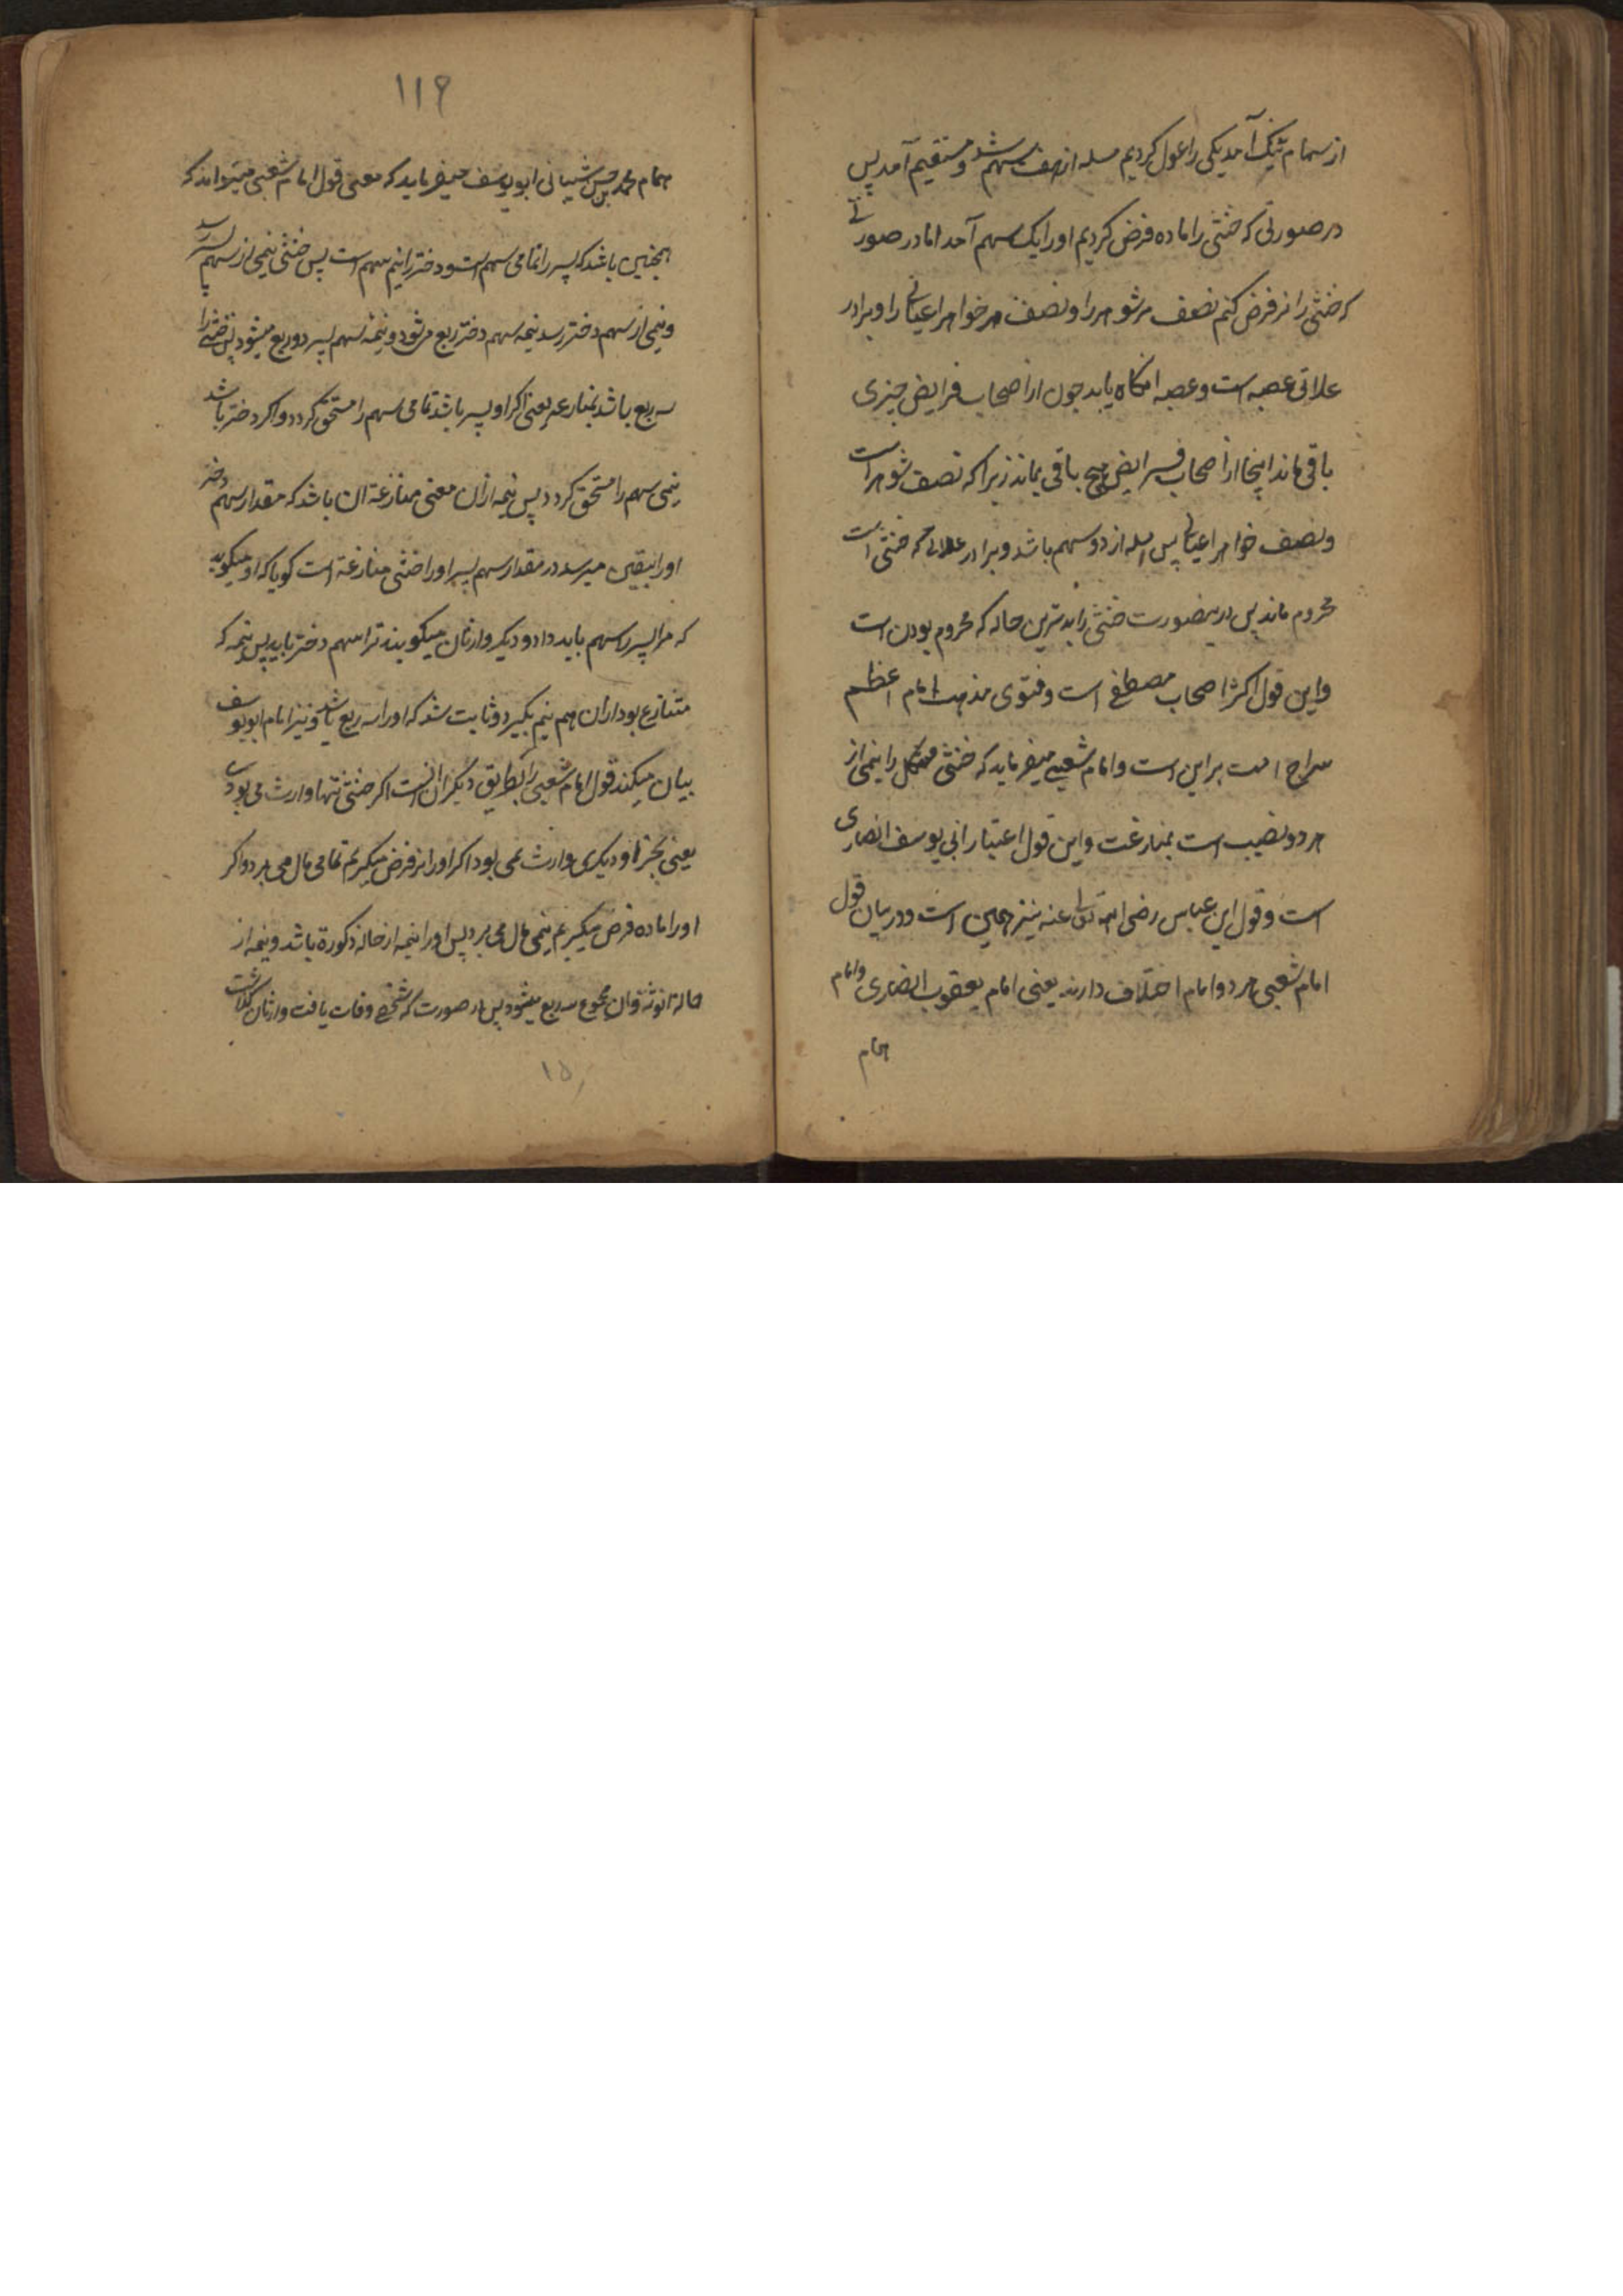 از سهام تنک آمد یکی را عول کردیم مسله از هفت سهم شد و مستقیم آمد پس
در صورتی که خنثی را ماده فرض کردیم او را یک سهم آمد اما در صورتی
که خنثی را نر فرض کنم نصف مر شوهر را و نصف مر خواهر اعیانی را و برادر
علاتی عصبه است و عصبه انکاه یابد چون از اصحاب فرایض چیزی
باقی ماند اینجا از اصحاب فرایض هیچ باقی نماند زیرا که نصف شوهر راست
و نصف خواهر اعیانی پس مسله از دو سهم باشد و برادر علاتی که خنثی است
محروم ماند پس درینصورت خنثی را بدترین حاله که محروم بودن است
و این قول اکثر اصحاب مصطفی است و فتوی مذهب امام اعظم
سراج امت بر این است و امام شعبی میفرماید که خنثی مشکل را نیمی از
هر دو نصیب است بمنازعت و این قول اعتبار ابی یوسف انصاری
است و قول ابن عباس رضی الله تعالی عنه نیز همین است و در بیان قول
امام شعبی هر دو امام اختلاف دارند یعنی امام یعقوب انصاری و امام
همام
۱۱۹
همام محمد بن حسن شیبانی ابو یوسف میفرماید که معنی قول امام شعبی میتواند که
همچنین باشد که پسر را تمامی سهم است و دختر را نیم سهم است پس خنثی نیمی از سهم پسر رسد
و نیمی از سهم دختر رسد نیمه سهم دختر ربع مرشود و نیمه سهم پسر دو ربع میشود پس خنثی را
سه ربع باشد بمنازعه یعنی اکر او پسر باشد تمامی سهم را مستحق کردد و اکر دختر باشد
نیمی سهم را مستحق کردد پس نیمه ازان معنی منازعة ان باشد که مقدار سهم دختر
او را بیقین میرسد در مقدار سهم پسر او را خنثی منازعة است کویا که او میکوید
که مرا پسر سهم باید داد و دیکر وارثان میکویند ترا سهم دختر باید پس نیمه که
متنازع بود از ان هم نیم بکیرد و ثابت شد که او را سه ربع باشد و نیز امام ابو یوسف
بیان میکند قول امام شعبی را بطریق دیکر ان انست اکر خنثی تنها وارث می بودی
یعنی بجز او دیکری وارث نمی بود اکر او را نر فرض میکیرم تمامی مال می برد و اکر
او را ماده فرض میکیرم نیمی مال می برد پس او را نیمه از حالة ذکورة باشد و نیمه از
حالة انوثة و ان مجموع سه ربع میشود پس هر صورت که شخصی وفات یافت و وارثان کذاشت
۱۵